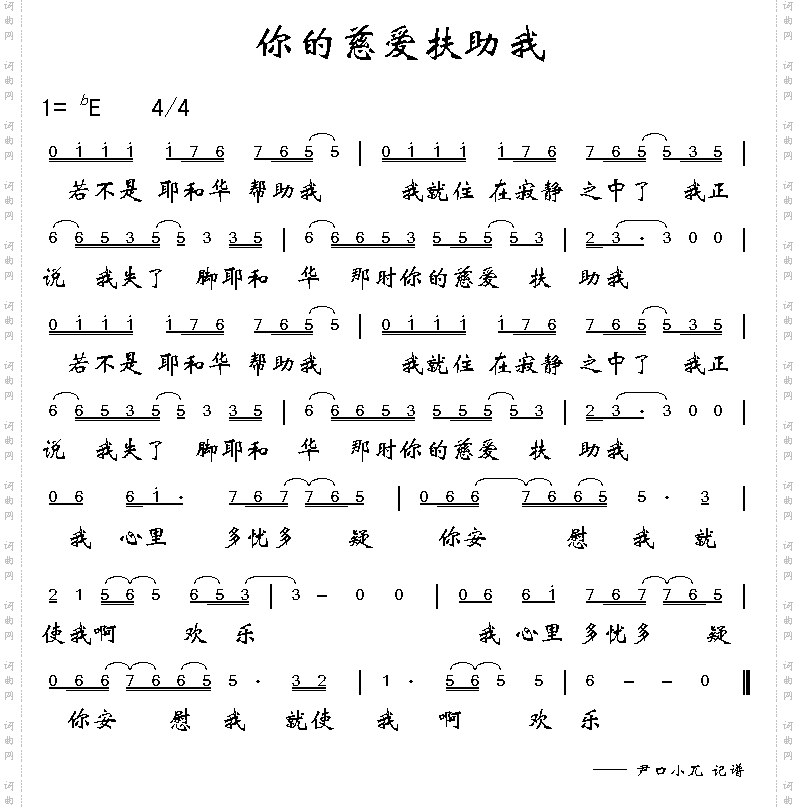 你的慈爱扶助我
1= ♭E 4/4
0 1 1 1 1 7 6 7 6 5 5 | 0 1 1 1 1 7 6 7 6 5 5 3 5 |
若不是 耶和华 帮助我 我就住 在寂静 之中了 我正
6 6 5 3 5 5 3 3 5 | 6 6 6 5 3 5 5 5 5 5 3 | 2 3 · 3 0 0 |
说 我失了 脚耶和 华 那时你的慈爱 扶 助我
0 1 1 1 1 7 6 7 6 5 5 | 0 1 1 1 1 7 6 7 6 5 5 3 5 |
若不是 耶和华 帮助我 我就住 在寂静 之中了 我正
6 6 5 3 5 5 3 3 5 | 6 6 6 5 3 5 5 5 5 5 3 | 2 3 · 3 0 0 |
说 我失了 脚耶和 华 那时你的慈爱 扶 助我
0 6 6 1 · 7 6 7 7 6 5 | 0 6 6 7 6 6 5 5 · 3 |
我 心里 多忧多 疑 你安 慰 我 就
2 1 5 6 5 6 5 3 | 3 – 0 0 | 0 6 6 1 7 6 7 7 6 5 |
使我啊 欢 乐 我 心里 多忧多 疑
0 6 6 7 6 6 5 5 · 3 2 | 1 · 5 6 5 5 | 6 – – 0
你安 慰 我 就使 我 啊 欢 乐
—— 尹口小瓦 记谱
词曲网
词曲网
词曲网
词曲网
词曲网
词曲网
词曲网
词曲网
词曲网
词曲网
词曲网
词曲网
词曲网
词曲网